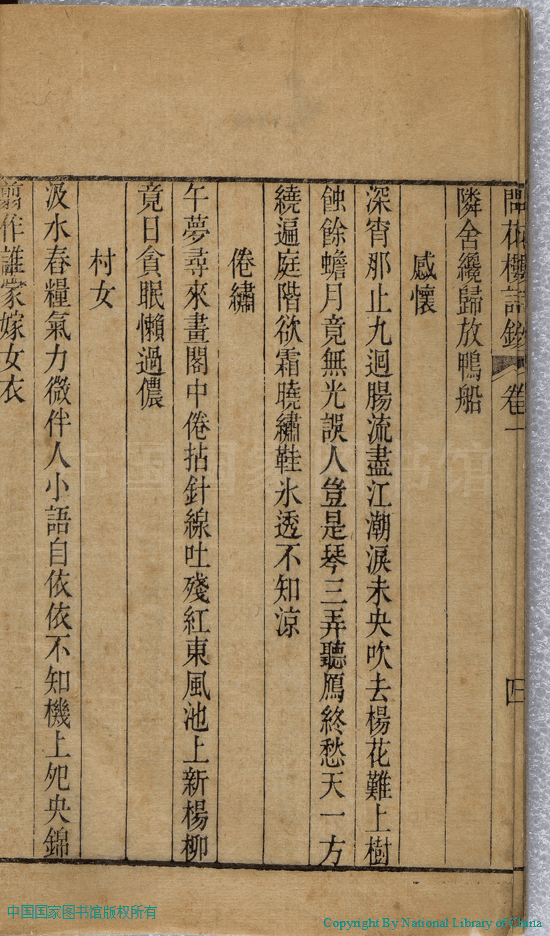 卷一
四
隣舍纔歸放鴨船
感懷
深宵那止九迴腸流盡江潮淚未央吹去楊花難上樹
蝕餘蟾月竟無光誤人豈是琴三弄聽鴈終愁天一方
繞遍庭階欲霜曉繡鞋氷透不知涼
倦繡
午夢尋來畫閣中倦拈針線吐殘紅東風池上新楊柳
竟日貪眠懶過儂
村女
汲水舂糧氣力微伴人小語自依依不知機上夗央錦
剪作誰家嫁女衣
中国国家图书馆版权所有
Copyright By National Library of China